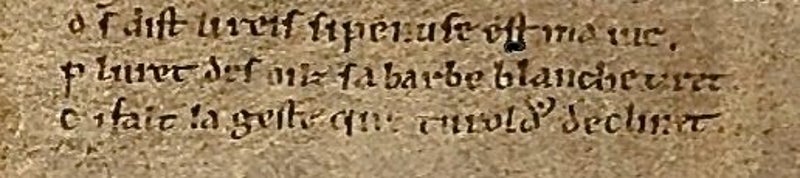 d s̄ dist li reis si penuse est ma vie.
p luret des oilz sa barbe blanche tiret.
c i falt la geste que turoldꝰ declinet.